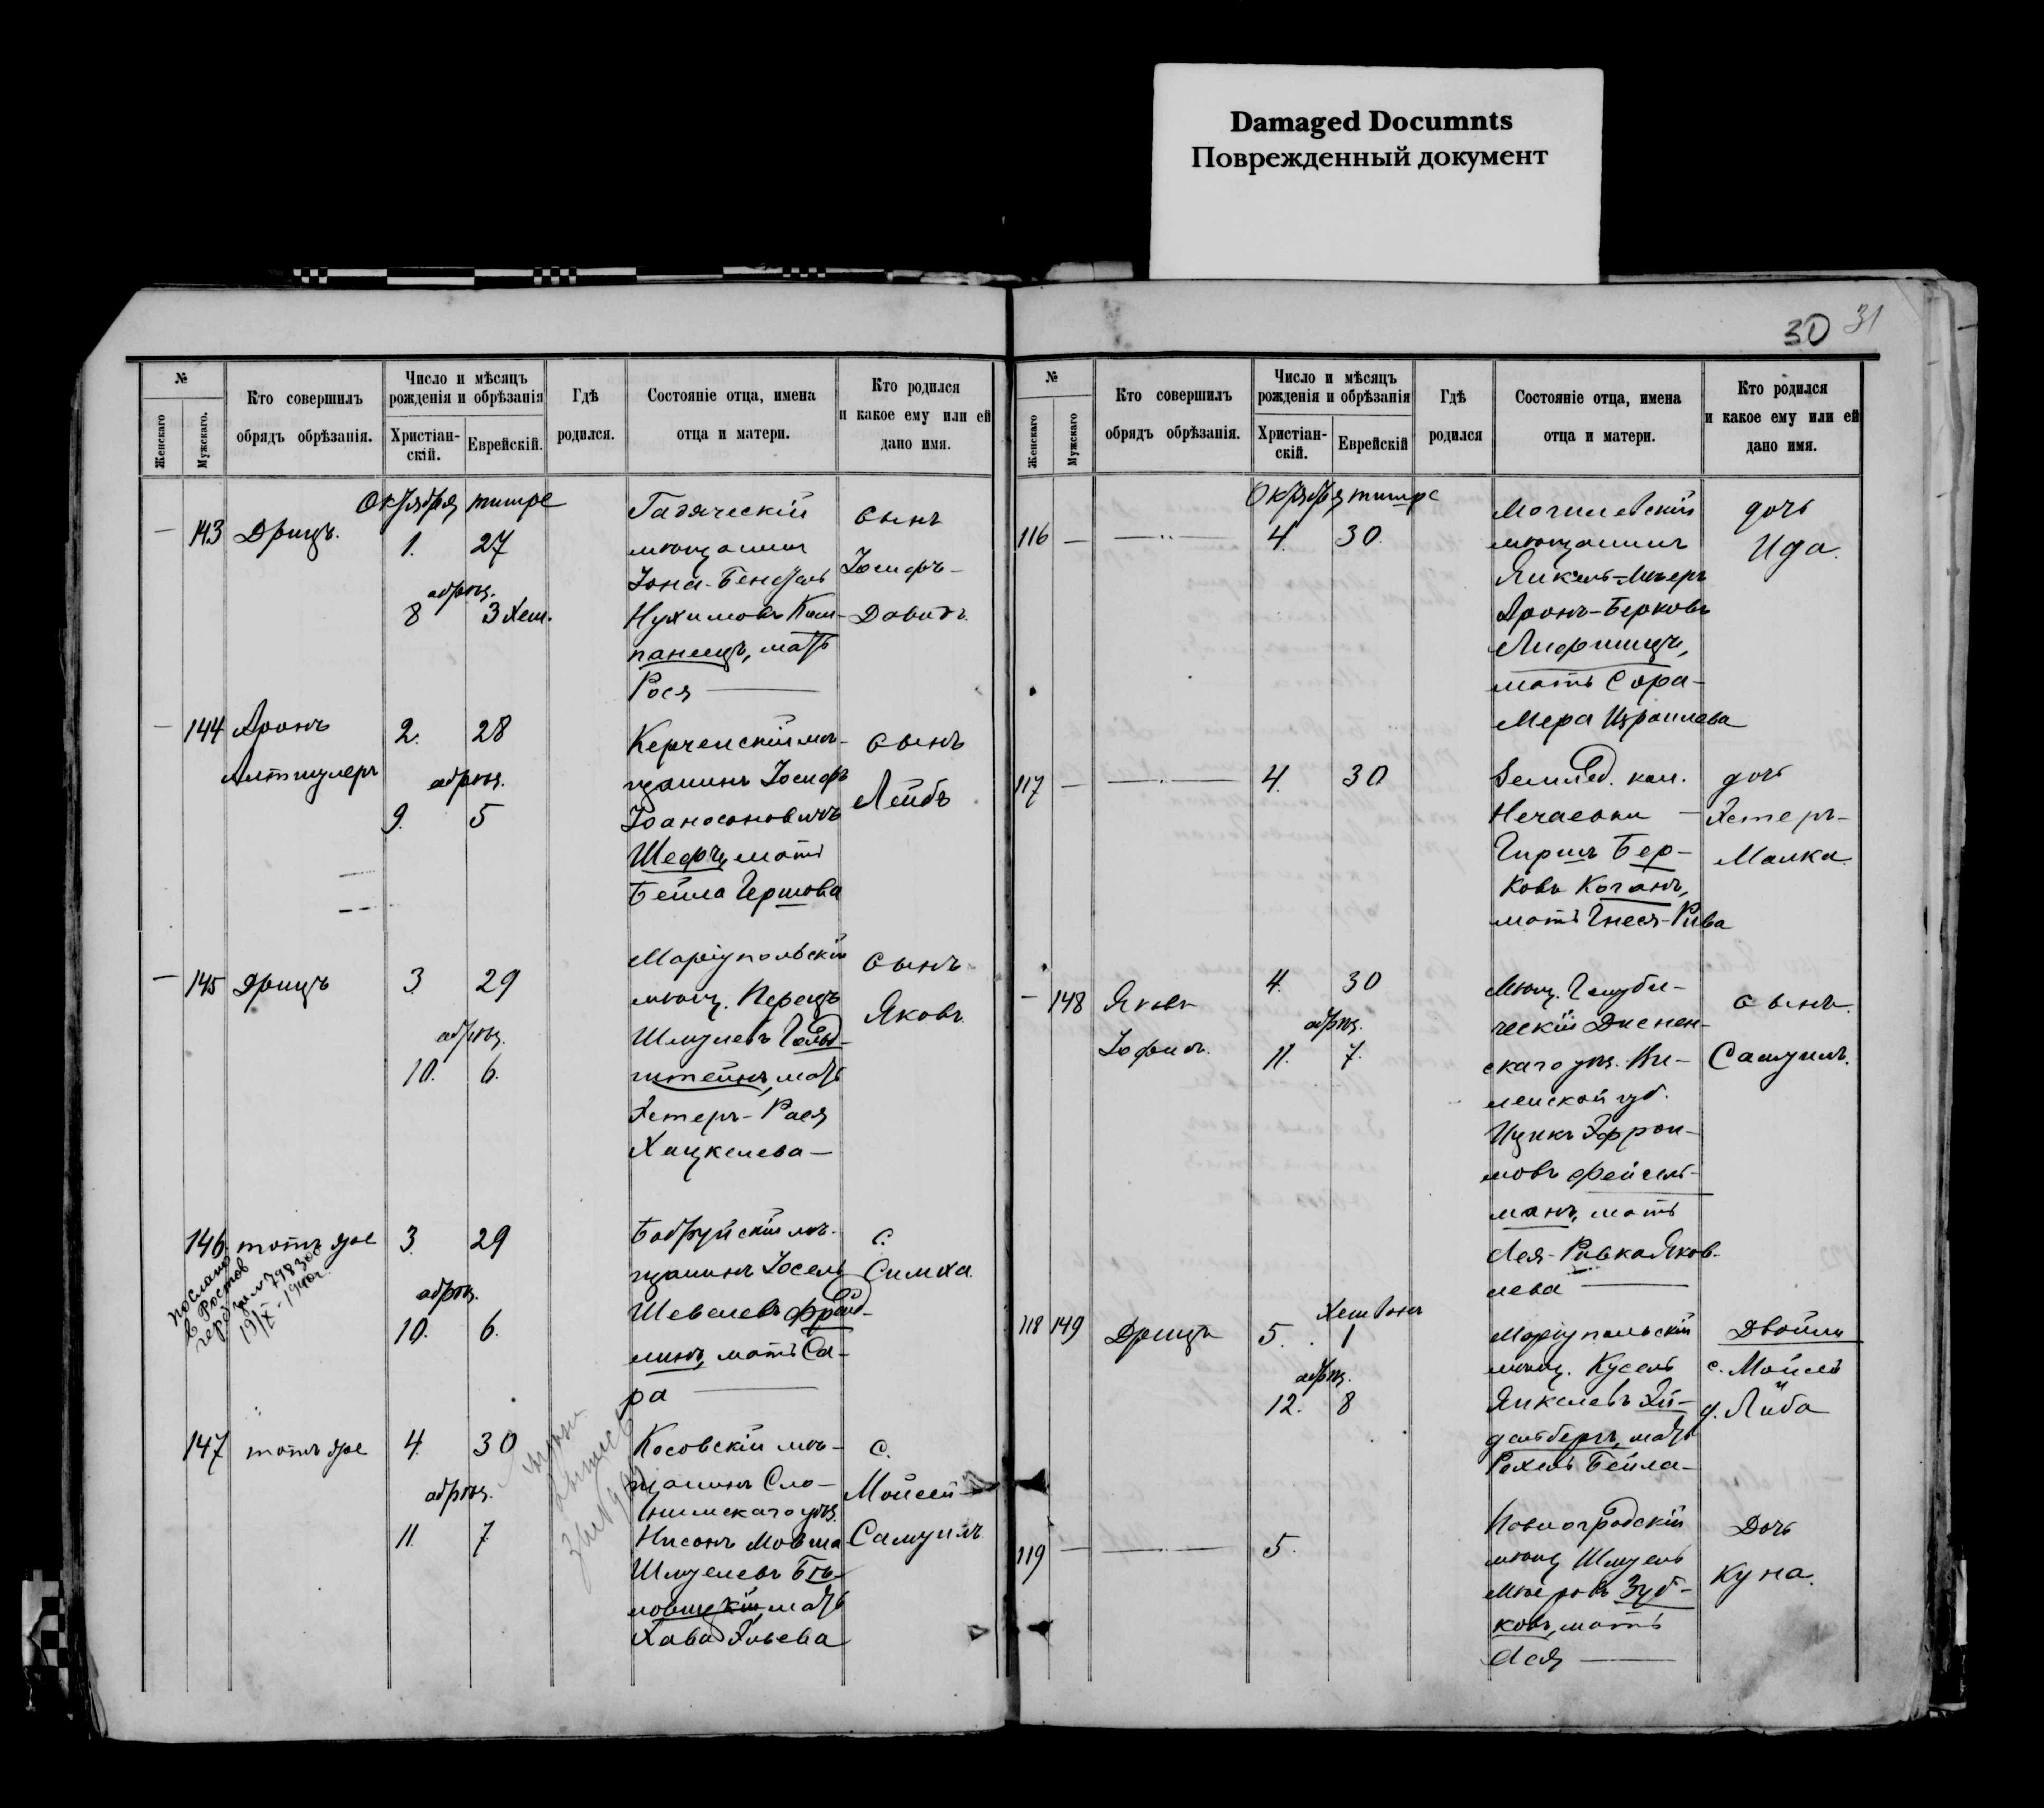 Damaged Documnts
Поврежденный документ
30 31
№
Женскаго
Мужскаго.
Кто совершилъ
обрядъ обрѣзанія.
Число и мѣсяцъ
рожденія и обрѣзанія
Христіан-
скій.
Еврейскій.
Гдѣ
родился.
Состояніе отца, имена
отца и матери.
Кто родился
и какое ему или ей
дано имя.
Октября тишре
— 143 Дрицъ. 1. 27
обрѣз.
8 3 Хеш.
Гадяческій
мѣщанинъ
Іона-Бендетъ
Нухимовъ Ком-
панецъ, мать
Рося —
сынъ
Іосифъ-
Давидъ.
— 144 Аронъ
Альтшулеръ
2. 28
обрѣз.
9. 5
Керченскій мѣ-
щанинъ Іосифъ
Шефъ, мать
Бейла Гершова
сынъ
Лейбъ
— 145 Дрицъ 3. 29
обрѣз.
10. 6.
Маріупольскій
мѣщ. Перецъ
Шмулевъ Гольд-
штейнъ, мать
Эстеръ-Рася
Хацкелева —
сынъ
Яковъ.
146 тотъ же 3. 29
обрѣз.
10. 6.
послано
в Ростов
Бобруйскій мѣ-
щанинъ Іосель
Шевелевъ Фрад-
линъ, мать Са-
ра —
с.
Симха.
147 тотъ же 4. 30
обрѣз.
11. 7
Косовскій мѣ-
щанинъ Сло-
нимскаго уѣз.
Нисонъ Мовша
Шмуелевъ Бѣ-
ловицкій, мать
Хава Эльева
с.
Мойсей-
Самуилъ
№
Женскаго
Мужскаго.
Кто совершилъ
обрядъ обрѣзанія.
Число и мѣсяцъ
рожденія и обрѣзанія
Христіан-
скій.
Еврейскій
Гдѣ
родился
Состояніе отца, имена
отца и матери.
Кто родился
и какое ему или ей
дано имя.
Октября тишре
116 — — 4. 30.
Могилевскій
мѣщанинъ
Янкель-Мѣеръ
Аронъ-Берковъ
Лифшицъ,
мать Сора-
Мера Израилева
дочь
Ида.
117 — — 4. 30
Земле­д. кол.
Нечаевки —
Гиршъ Бер-
ковъ Коганъ,
мать Гнеся-Рива
дочь
Эстеръ-
Малка.
— 148 Яковъ
Іофинъ.
4. 30
обрѣз.
11. 7.
Мѣщ. Голуби-
ческій Диснен-
скаго уѣз. Ви-
ленской губ.
Ицикъ Эфрои-
мовъ Фейгель-
манъ, мать
Лея-Ривка Яков-
лева —
сынъ.
Самуилъ.
118 149 Дрицъ
Хешвонъ
5. 1
обрѣз.
12. 8
Маріупольскій
мѣщ. Кусель
Янкелевъ Эй-
дельбергъ, мать
Рохель Бейла-
Двойни
с. Мойсей
и
д. Либа
119 — — 5.
Новоградскій
мѣщ Шмуель
Мѣеровъ Зуб-
ковъ, мать
Лея —
Дочь
Куна.